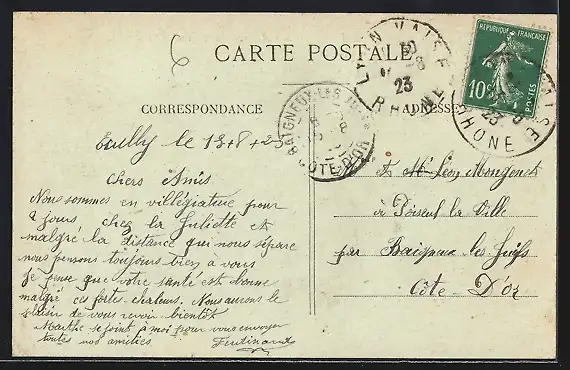 6
CARTE POSTALE
CORRESPONDANCE
ADRESSE
LYON VAISE
RHONE
23
BAIGNEUX-LES-JUIFS
COTE-D'OR
REPUBLIQUE FRANÇAISE
10c
POSTES
RHONE
Ecully le 13+8+23
Chers Amis
Nous sommes en villégiature pour
2 jours chez la Juliette et
malgré la distance qui nous sépare
nous pensons toujours bien à vous
je pense que votre santé est bonne
malgré ces fortes chaleurs. Nous aurons le
plaisir de vous revoir bientôt
Marthe se joint à moi pour vous envoyer
toutes nos amitiés Ferdinand
M et Me Léon Mongenet
à Poiseul la Ville
par Baigneux les Juifs
Côte D'or